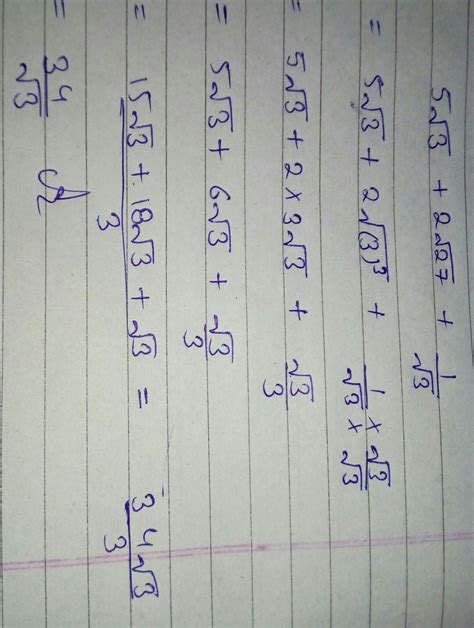 5√3 + 2√27 + 1/√3
= 5√3 + 2√(3)³ + 1/√3 × √3/√3
5√3 + 2×3√3 + √3/3
= 5√3 + 6√3 + √3/3
= (15√3 + 18√3 + √3)/3 = 34√3/3
= 34/√3